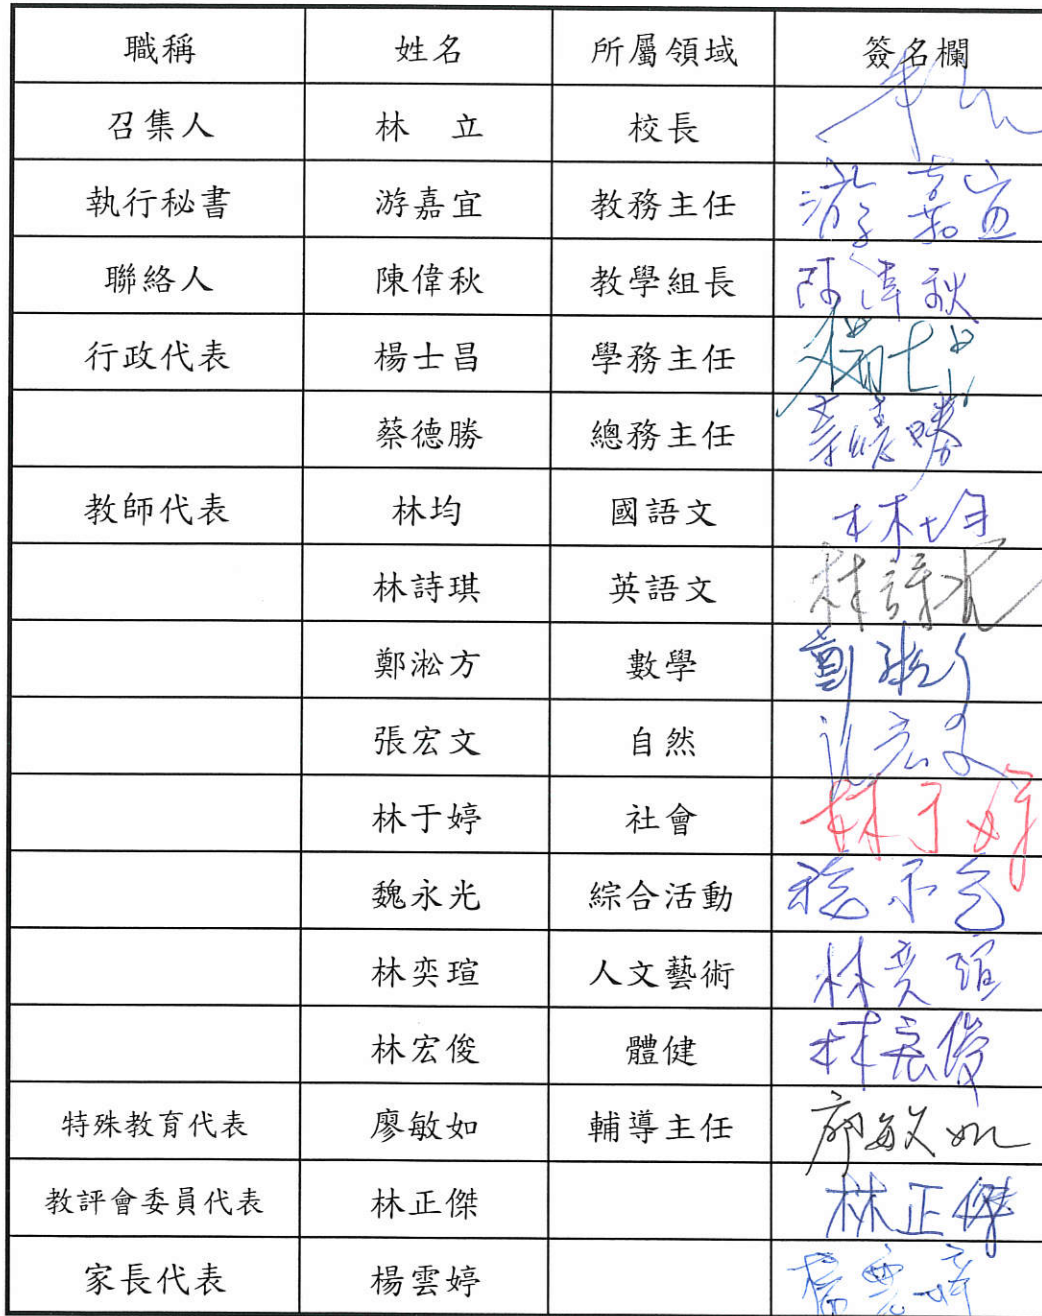 職稱 姓名 所屬領域 簽名欄
召集人 林 立 校長
執行秘書 游嘉宜 教務主任 游嘉宜
聯絡人 陳偉秋 教學組長 陳偉秋
行政代表 楊士昌 學務主任 楊士昌
蔡德勝 總務主任 蔡德勝
教師代表 林均 國語文 林均
林詩琪 英語文 林詩琪
鄭淞方 數學 鄭淞方
張宏文 自然 張宏文
林于婷 社會 林于婷
魏永光 綜合活動 魏永光
林奕瑄 人文藝術 林奕瑄
林宏俊 體健 林宏俊
特殊教育代表 廖敏如 輔導主任 廖敏如
教評會委員代表 林正傑 林正傑
家長代表 楊雲婷 楊雲婷